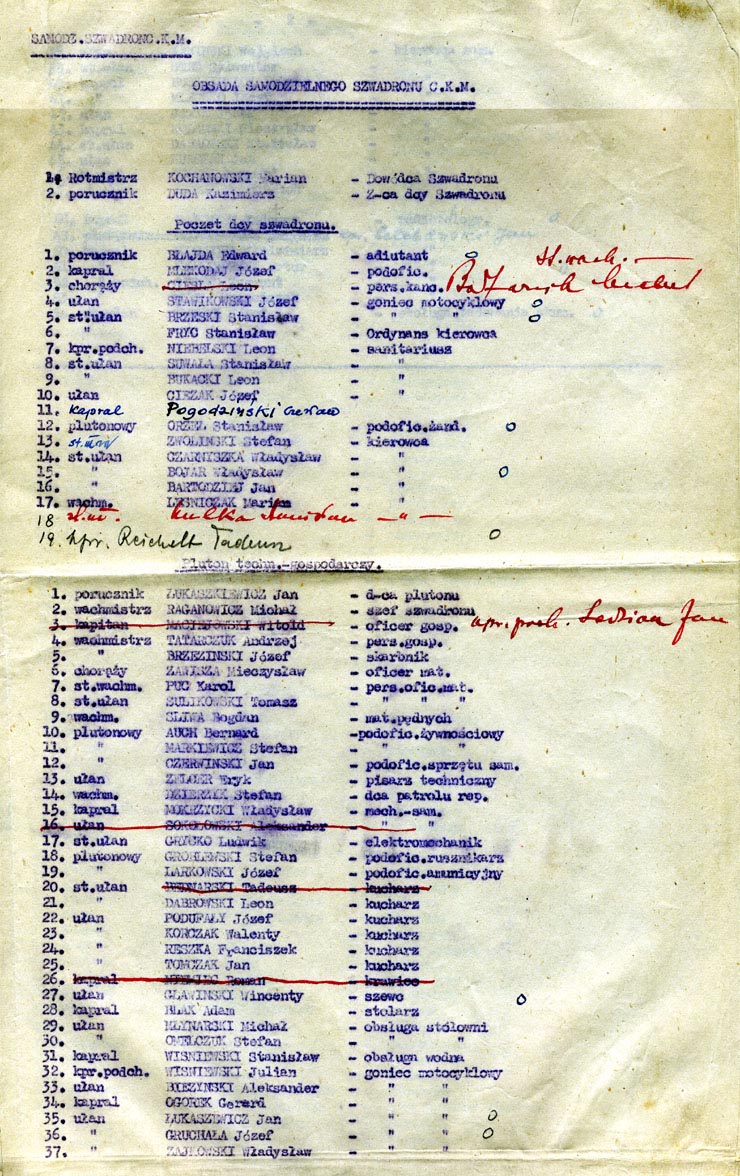 SAMODZ.SZWADRONC.K.M.
OBSADA SAMODZIELNEGO SZWADRONU C.K.M.
1. Rotmistrz KOCHANOWSKI Marian - Dowódca Szwadronu
2. porucznik DUDA Kazimierz - Z-ca dcy Szwadronu
Poczet dcy szwadronu.
1. porucznik BŁAJDA Edward - adiutant
st.wach.
2. kapral MŁEKODAJ Józef - podofic.
3. chorąży CIEŚLA Leon - pers.kanc.
4. ułan STAWIKOWSKI Józef - goniec motocyklowy
5. st.ułan BRZESKI Stanisław - " "
6. " FRYC Stanisław - Ordynans kierowca
7. kpr.podch. NIEBELSKI Leon - sanitariusz
8. st.ułan SUWAŁA Stanisław - "
9. " BUKACKI Leon - "
10. ułan CIEZAK Józef - "
11. Kapral Pogodziński Czesław
12. plutonowy ORZEŁ Stanisław - podofic.żand.
13. st. ułan ZWOLIŃSKI Stefan - kierowca
14. st.ułan CZARNYSZKA Władysław - "
15. " BOJAR Władysław - "
16. " BARTODZIEJ Jan - "
17. wachm. LEŚNICZAK Marian - "
18 st.uł. Kulka Stanisław - " -
19. kpr. Reichelt Tadeusz
Pluton techn.-gospodarczy.
1. porucznik ŁUKASZKIEWICZ Jan - d-ca plutonu
2. wachmistrz RAGANOWICZ Michał - szef szwadronu
3. kapitan MACIEJOWSKI Witold - oficer gosp. Jan
4. wachmistrz TATARCZUK Andrzej - pers.gosp.
5. " BRZEZIŃSKI Józef - skarbnik
6. chorąży ZAWISZA Mieczysław - oficer mat.
7. st.wachm. PUC Karol - pers.ofic.mat.
8. st.ułan SULIKOWSKI Tomasz - " " "
9. wachm. SLIWA Bogdan - mat.pędnych
10. plutonowy AUCH Bernard -podofic.żywnościowy
11. " MARKIEWICZ Stefan - " "
12. " CZERWIŃSKI Jan - podofic.sprzętu sam.
13. ułan ZELCER Eryk - pisarz techniczny
14. wachm. DZIERZYK Stefan - dca patrolu rep.
15. kapral MOKRZYCKI Władysław - mech.-sam.
16. ułan SOKOŁOWSKI Aleksander - " "
17. st.ułan GRYCKO Ludwik - elektromechanik
18. plutonowy GROBLEWSKI Stefan - podofic.rusznikarz
19. " LARKOWSKI Józef - podofic.amunicyjny
20. st.ułan BEDNARSKI Tadeusz - kucharz
21. " DĄBROWSKI Leon - kucharz
22. ułan PODUFAŁY Józef - kucharz
23. " KOŃCZAK Walenty - kucharz
24. " RESZKA Franciszek - kucharz
25. " TOMCZAK Jan - kucharz
26. kapral Roman - krawiec
27. ułan GŁAWIŃSKI Wincenty - szewc
28. kapral BLAK Adam - stolarz
29. ułan MŁYNARSKI Michał - obsługa stołowni
30. " OMELCZUK Stefan - " "
31. kapral WIŚNIEWSKI Stanisław - obsługa wodna
32. kpr.podch. WISNIEWSKI Julian - goniec motocyklowy
33. ułan BIEZYNSKI Aleksander - " "
34. kapral OGOREK Gererd - " "
35. ułan ŁUKASZEWICZ Jan - " "
36. " GRUCHAŁA Józef - " "
37. " ZAJKOWSKI Władysław - " "